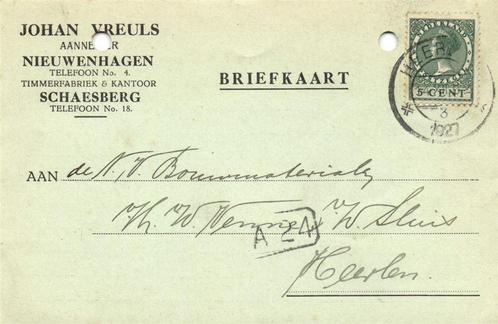 JOHAN VREULS
AANNEMER
NIEUWENHAGEN
TELEFOON No. 4.
TIMMERFABRIEK & KANTOOR
SCHAESBERG
TELEFOON No. 18.
BRIEFKAART
NEDERLAND
5 CENT
HEER
3
1927
AAN de N.V. Bouwmaterialen
Th. W. v/d Sluis
A 24
Heerlen.